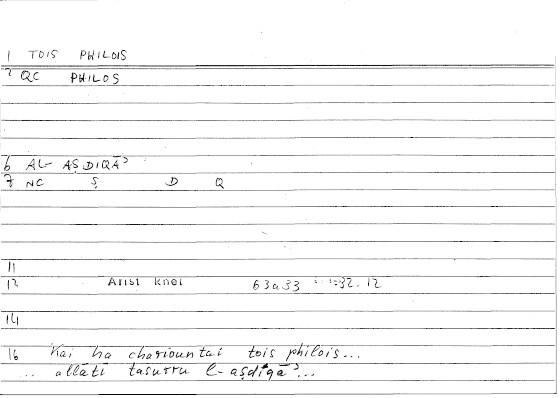 1 TOIS PHILOIS
2 QC PHILOS
6 AL- AṢDIQĀʾ
7 NC Ṣ D Q
11
12 Arist Rhet 63a33 32.12
14
16 Kai ha chariountai tois philois...
.. allātī tasurru l-aṣdiqāʾ...